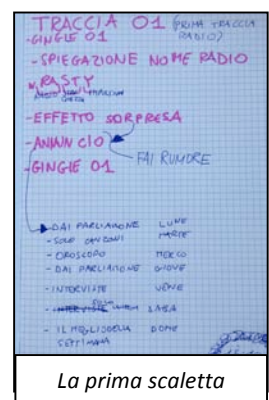 TRACCIA 01 (PRIMA TRACCIA RADIO)
-GINGLE 01
-SPIEGAZIONE NOME RADIO
RASTY
-EFFETTO SORPRESA
-ANNUNCIO
FAI RUMORE
-GINGIE 01
-DAI PARLIAMONE LUNE
-SOLO CANZONI MARTE
-OROSCOPO MERCO
-DAI PARLIAMONE GIOVE
-INTERVISTE VENE
SABA
-IL MEGLIO DELLA SETTIMANA DOME
La prima scaletta